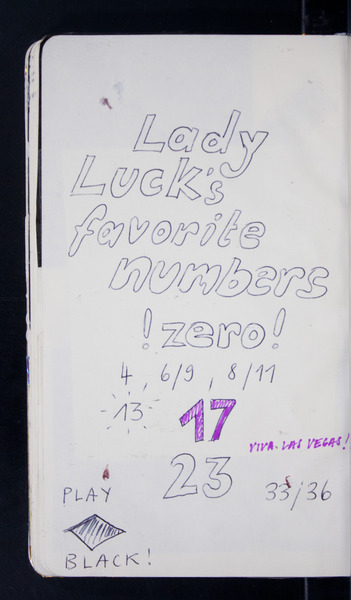 Lady
Luck's
favorite
numbers
!zero!
4, 6/9, 8/11
13 17
VIVA LAS VEGAS!
23 33/36
PLAY
BLACK!